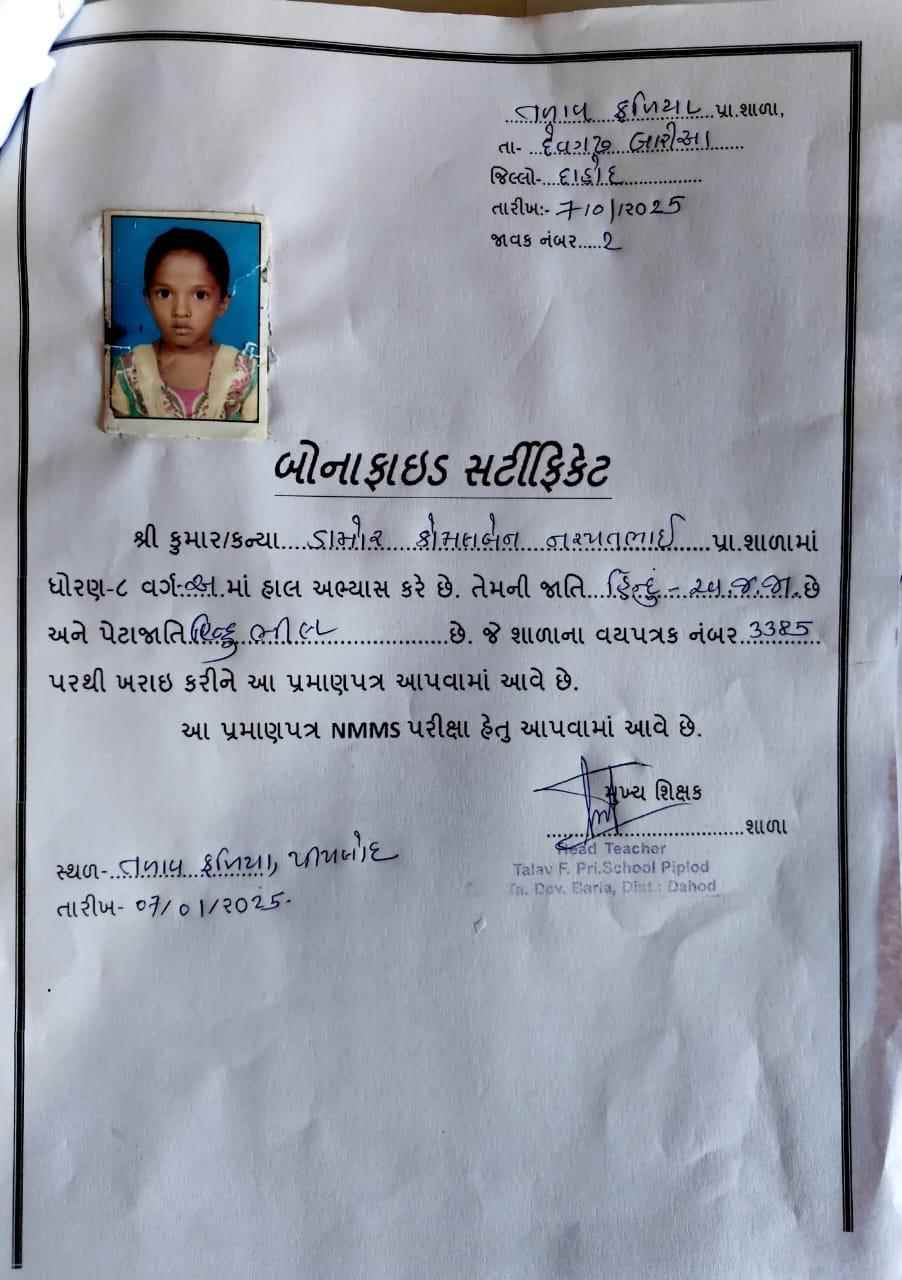 તળાવ ફળિયા પ્રા.શાળા,
તા- દેવગઢ બારીઆ
જિલ્લો- દાહોદ
તારીખ:- 7/0૧/૨૦25
જાવક નંબર.....2
બોનાફાઇડ સર્ટીફિકેટ
શ્રી કુમાર/કન્યા....ડામોર કોમલબેન નરપતભાઈ......પ્રા.શાળામાં
ધોરણ-૮ વર્ગ-અ.માં હાલ અભ્યાસ કરે છે. તેમની જાતિ...હિન્દુ - અ.જ.જા.છે
અને પેટાજાતિ હિન્દુ ભીલ................છે. જે શાળાના વયપત્રક નંબર..3385
પરથી ખરાઇ કરીને આ પ્રમાણપત્ર આપવામાં આવે છે.
આ પ્રમાણપત્ર NMMS પરીક્ષા હેતુ આપવામાં આવે છે.
મુખ્ય શિક્ષક
..............................શાળા
Head Teacher
Talav F. Pri.School Piplod
Ta. Dev. Baria, Dist.: Dahod
સ્થળ-..તળાવ ફળિયા, પીપલોદ
તારીખ- 07/01/૨૦25.